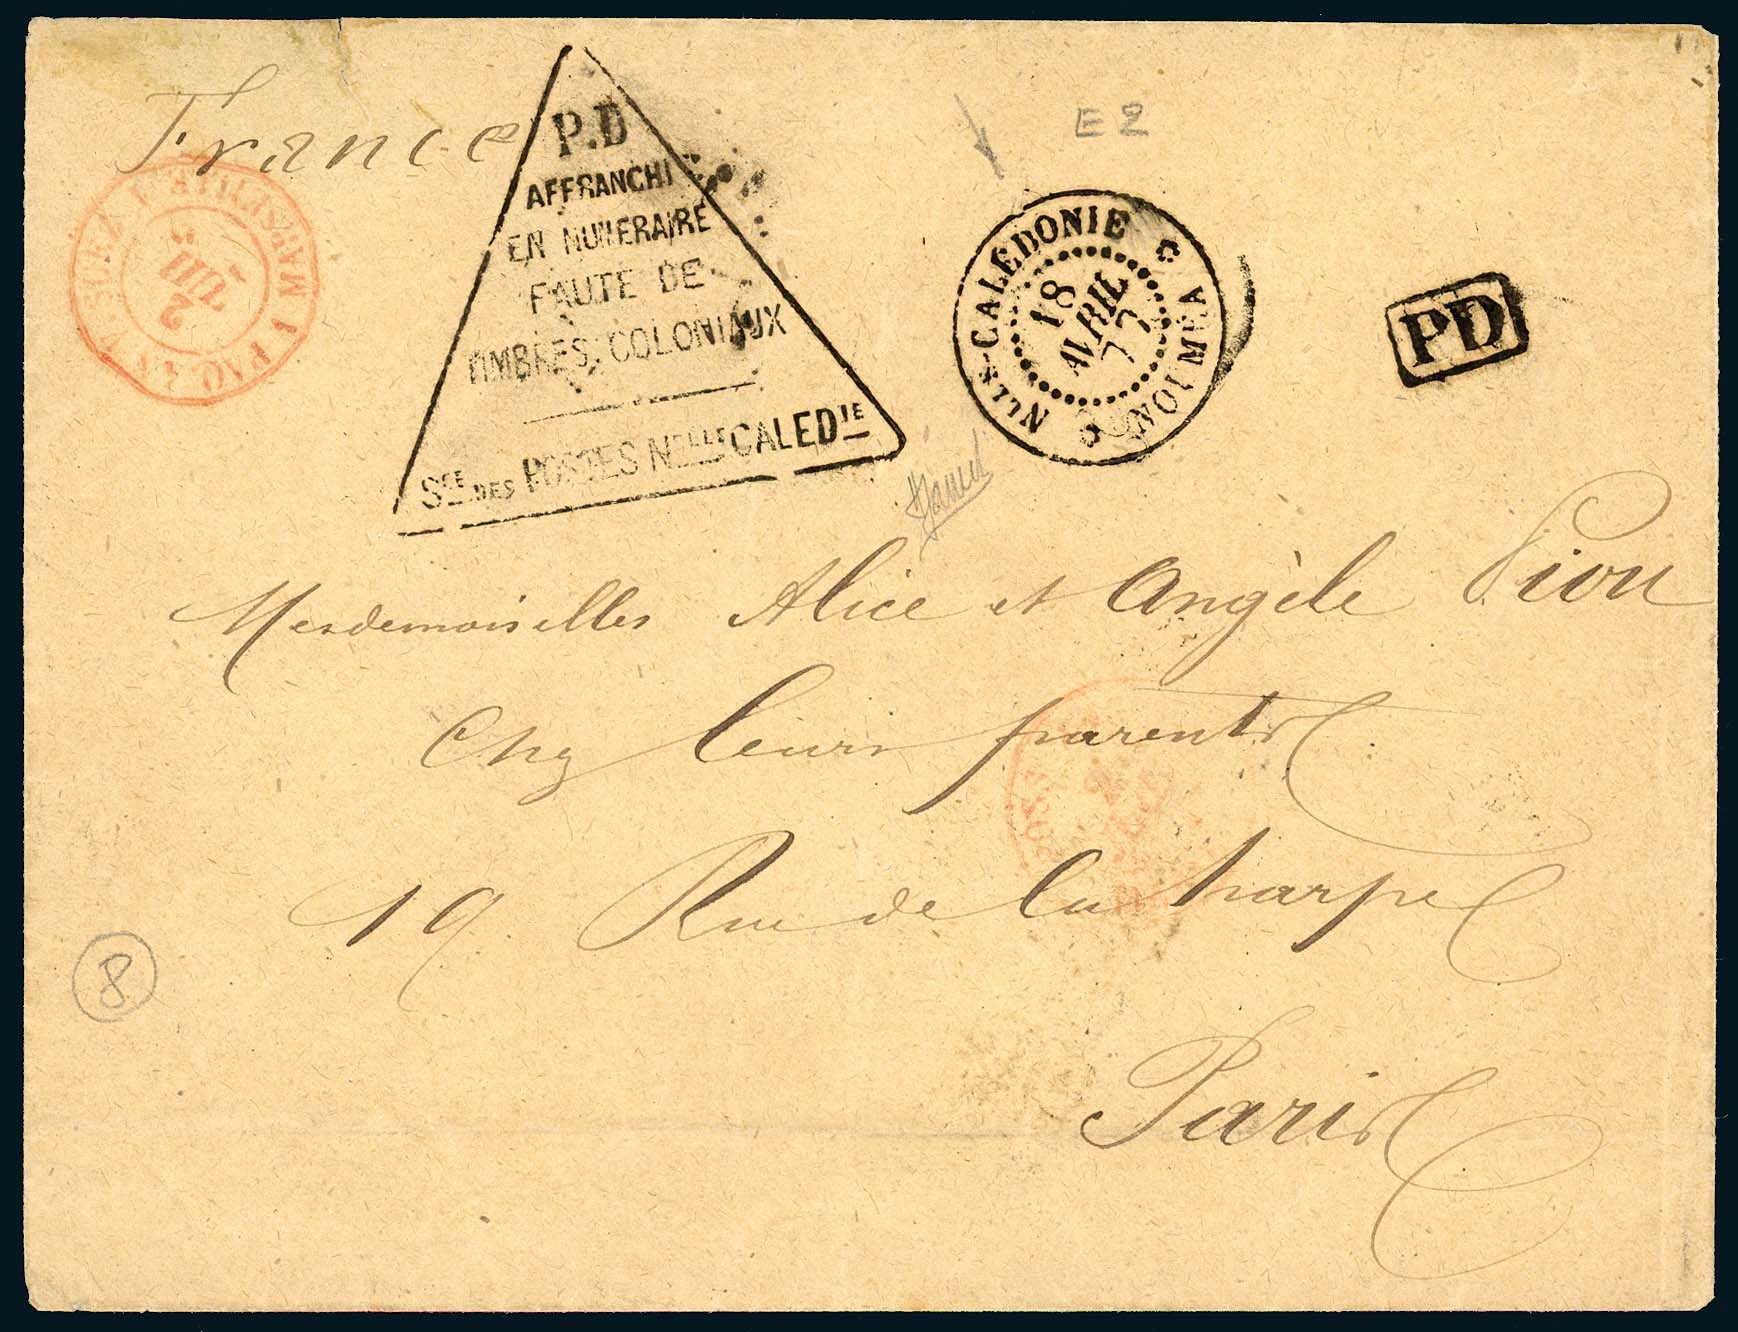 France
P.D
AFFRANCHI
EN NUMERAIRE
FAUTE DE
TIMBRES COLONIAUX
SCE DES POSTES NELLE CALEDIE
NLLE-CALEDONIE
18
AVRIL
77
E 2
PD
2
JUIL
Mesdemoiselles Alice et Angèle Piou
Chez leurs parents
19 Rue de la harpe
Paris
8